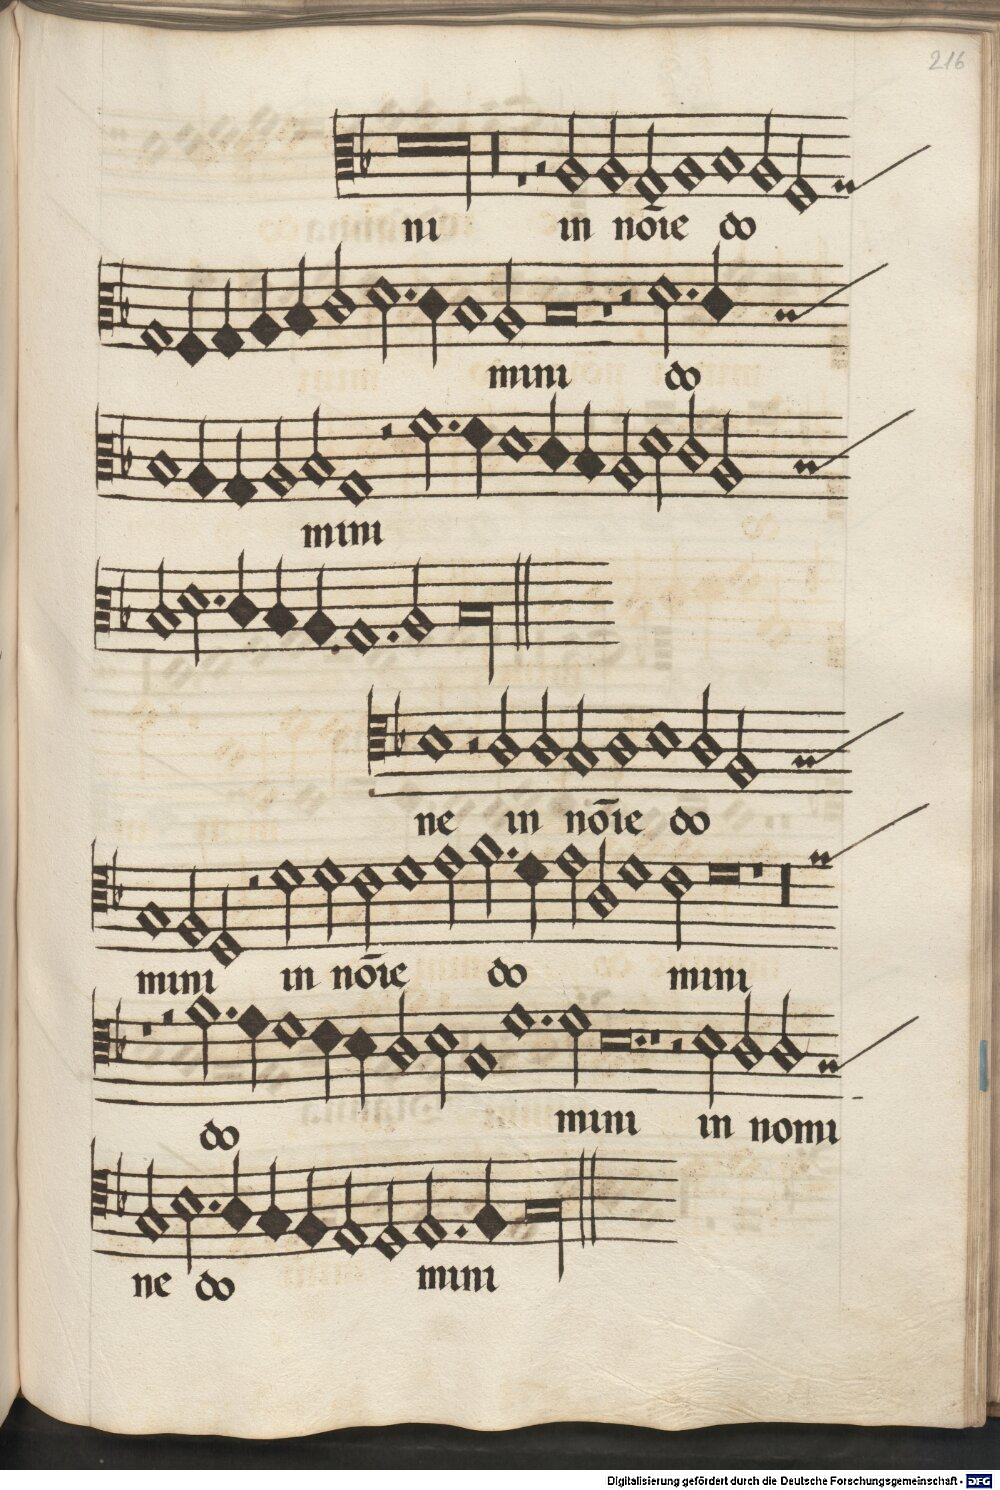 216
ni in nōie do
mini do
mini
ne in nōie do
mini in nōie do mini
do mini in nomi
ne do mini
Digitalisierung gefördert durch die Deutsche Forschungsgemeinschaft - DFG